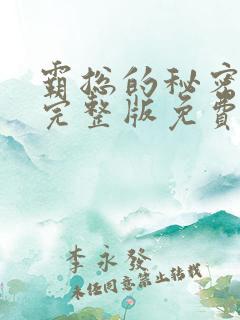 霸总的秘密
完整版免费
李永發
未经同意禁止转载